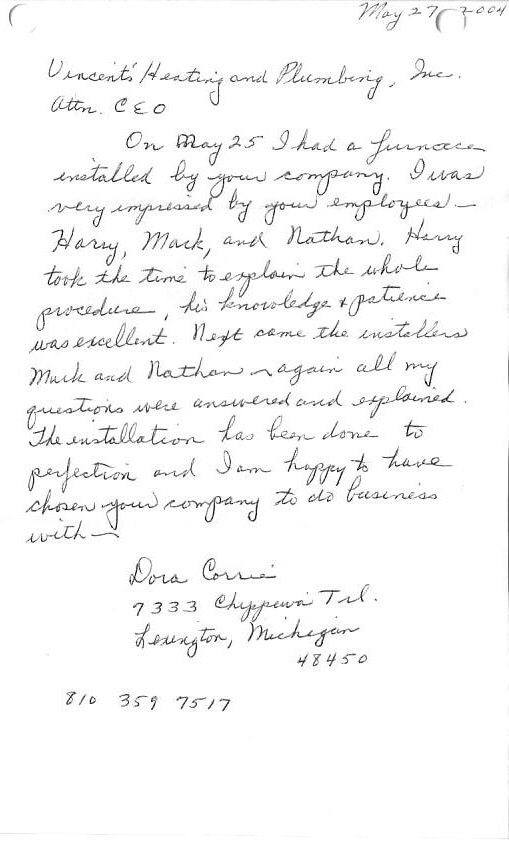 May 27, 2004
Vincent's Heating and Plumbing, Inc.
Attn. CEO
On May 25 I had a furnace
installed by your company. I was
very impressed by your employees -
Harry, Mack, and Nathan. Harry
took the time to explain the whole
procedure, his knowledge & patience
was excellent. Next came the installers
Mack and Nathan - again all my
questions were answered and explained.
The installation has been done to
perfection and I am happy to have
chosen your company to do business
with -
Dora Corrie
7333 Chippewa Trl.
Lexington, Michigan
48450
810 359 7517